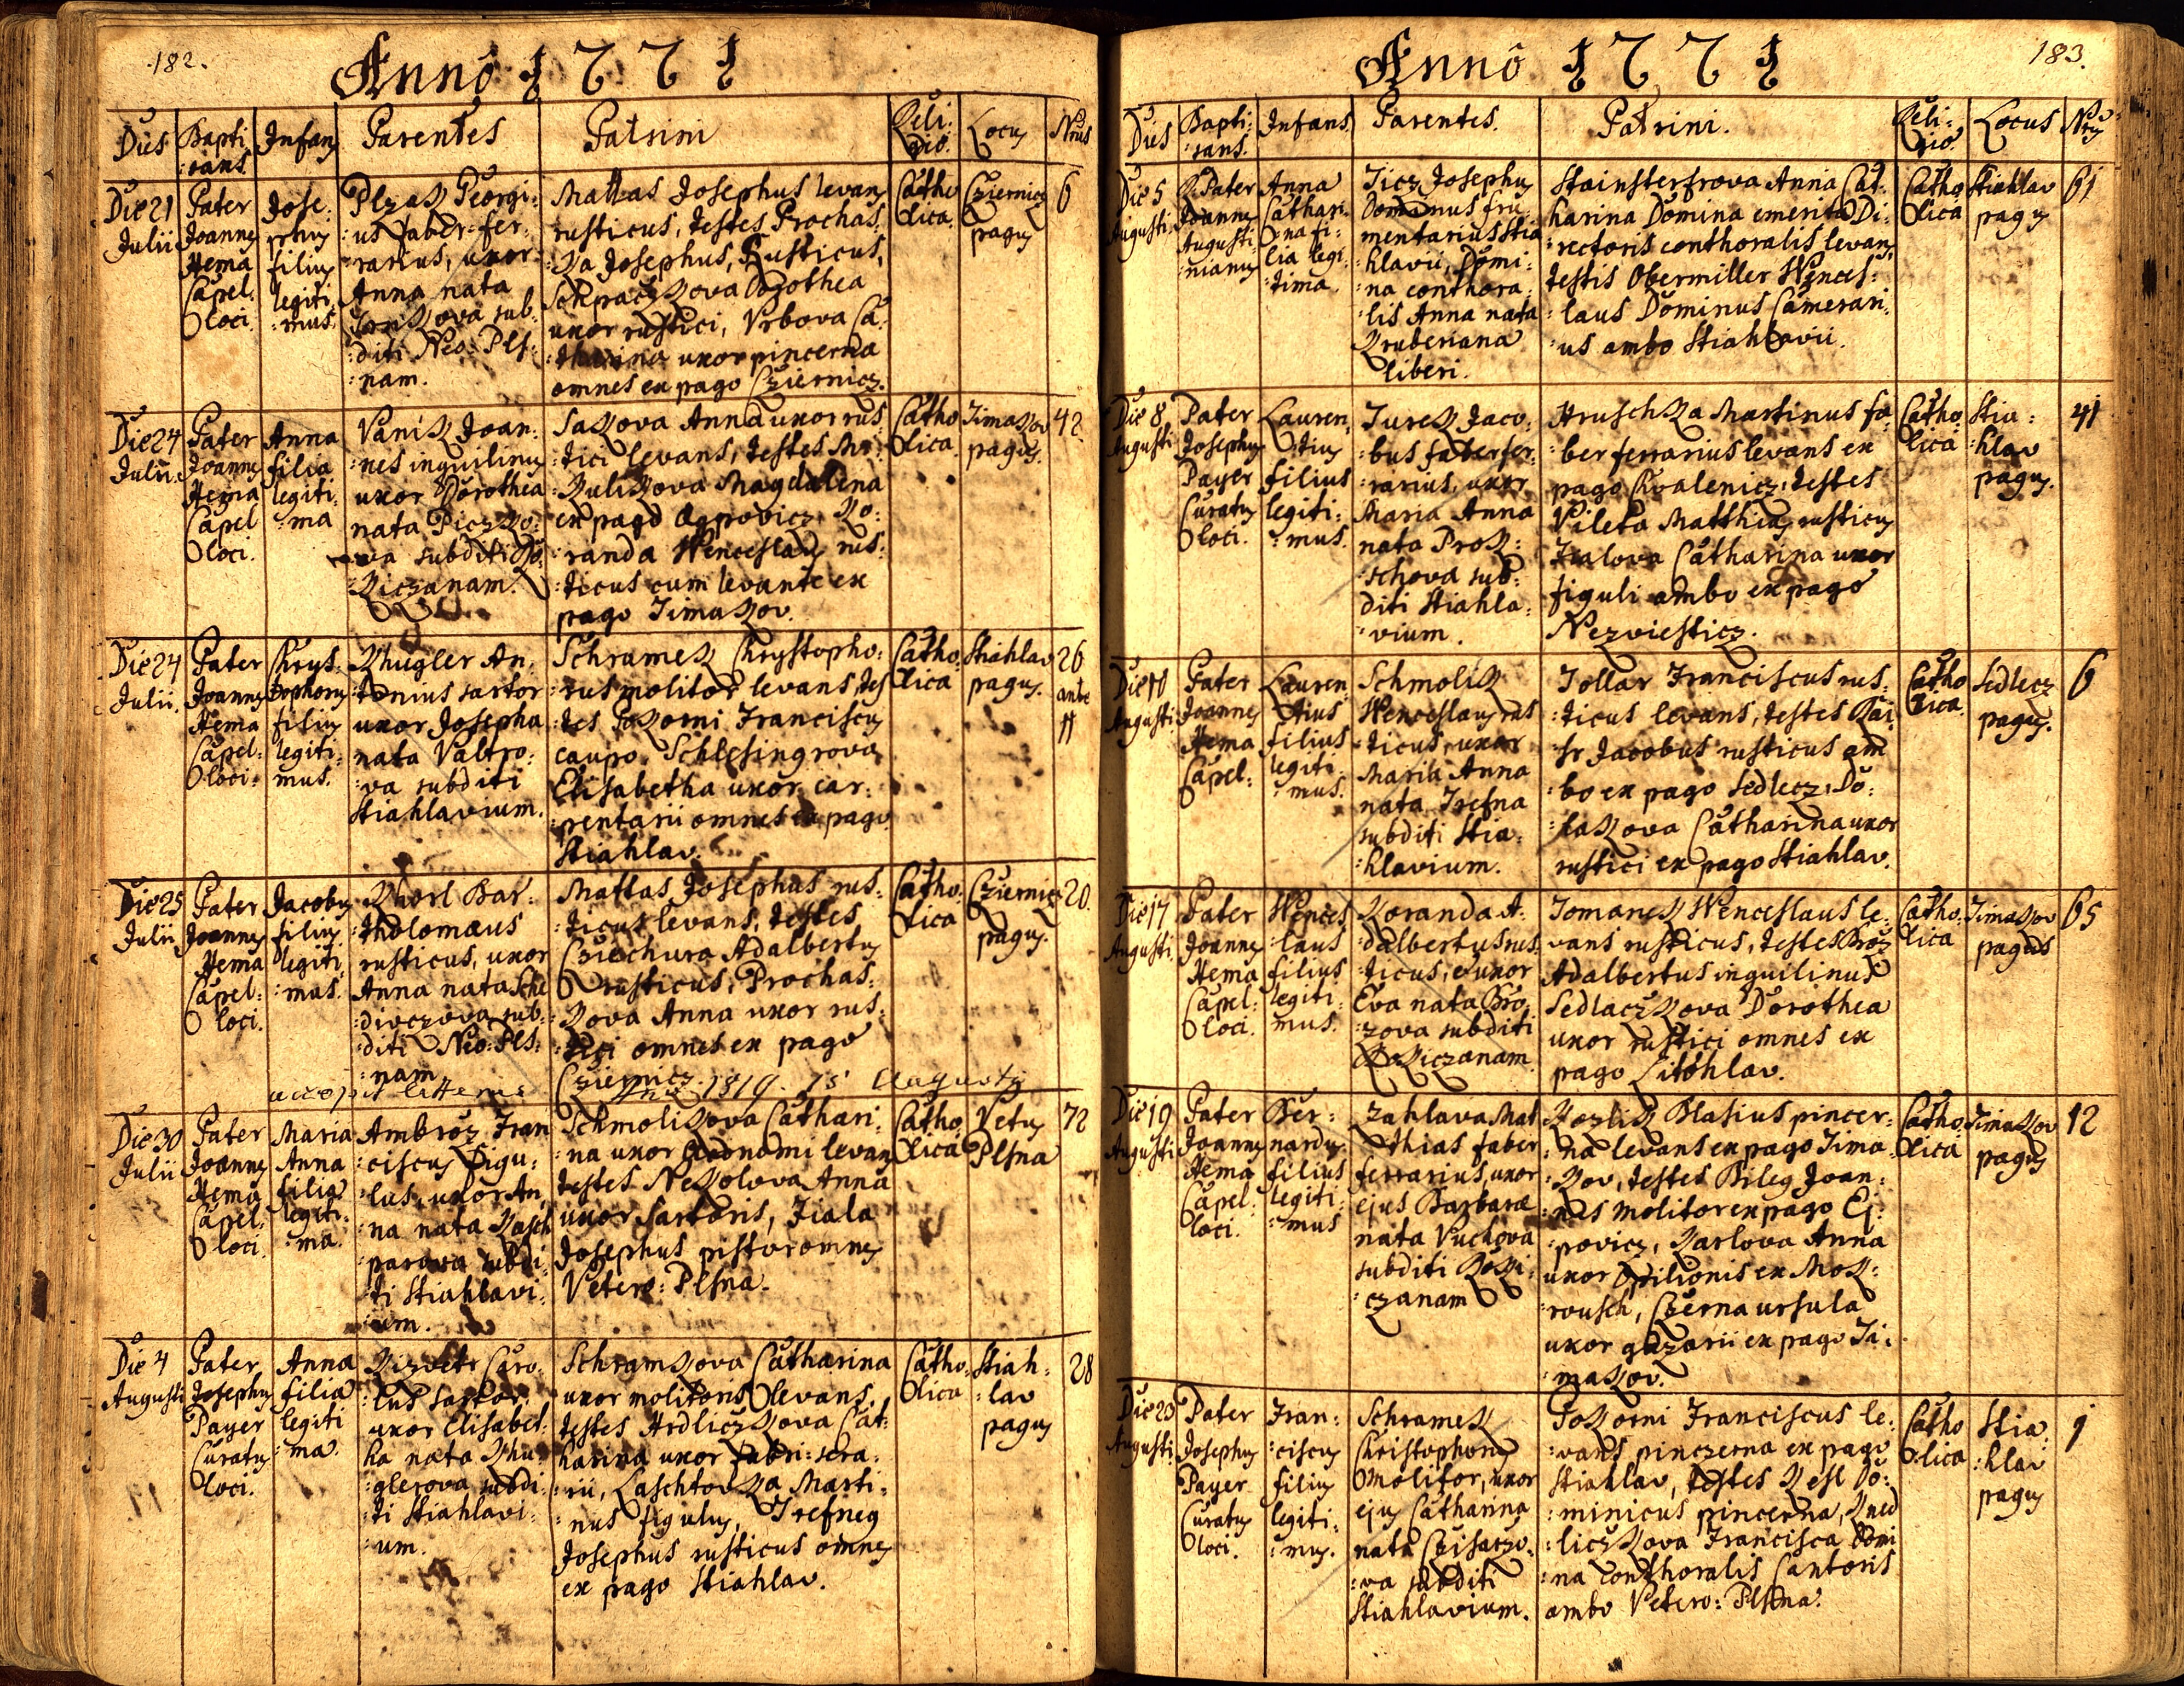 182.
Annô 1771
Dies Bapti:
:zans Infans Parentes Patrini Reli:
gio. Locus Nrus
Die 21
Julii
Pater
Joannes
Hema
Capel:
loci.
Jose:
:phus
filius
legiti:
:mus.
Plzak Georgi:
:us faber fer:
:rarius, uxor
Anna nata
sub:
:diti Neo: Pls:
:nam.
Mattas Josephus levans
rusticus, testes Prochas:
:ka Josephus, Rusticus,
Dorothea
uxor rustici, Vrbova Ca:
:tharina uxor pincerna
omnes ex pago Cziernicz.
Catho
lica.
Cziernicz
pagus
6
Die 24
Julii.
Pater
Joannes
Hema
Capel
loci.
Anna
filia
legiti:
:ma
Vanik Joan:
:nes inquilinus
uxor Dorothea
nata Piczko:
:va subditi Ro:
:kiczanam.
Sakova Anna uxor rus:
:tici levans, testes Mi:
:kulikova Magdalena
ex pago Ogpovicz, Ko:
:randa Wenceslaus rus:
:ticus cum levante ex
pago Timakov.
Catho
lica.
Timakov
pagus.
42
Die 24
Julii.
Pater
Joannes
Hema
Capel:
loci:
Chrys:
:tophorus
filius
legiti:
mus.
Khugler An:
:tonius sartor
uxor Josepha
nata Valtro:
:va subditi
Stiahlavium.
Schramek Chrystopho:
:rus molitor levans, tes
:tes Pokorni Franciscus
caupo, Schlesingrova
Elisabetha uxor car:
:pentarii omnes ex pago
Stiahlav.
Catho
lica
Stiahlav
pagus.
26
ante
11
Die 25
Julii
Pater
Joannes
Hema
Capel:
loci.
Jacobus
filius
legiti:
:mus.
Khorl Bar:
:tholomæus
rusticus, uxor
Anna nata Sche
:divczova sub:
:diti Neo: Pls:
:nam
Mattas Josephus rus:
:ticus levans, testes
Cziechura Adalbertus
rusticus, Prochas:
:kova Anna uxor rus:
:tici omnes ex pago
Cziernicz.
Catho:
lica
Cziernicz
pagus.
20.
accepit litteras 1819. 15 Augusti
Die 30
Julii
Pater
Joannes
Hema
Capel:
loci.
Maria
Anna
filia
legiti:
:ma.
Ambroz Fran
:ciscus Figu:
:lus, uxor An:
:na nata Kasch
:parova subdi:
:ti Stiahlavi:
:um.
Schmolikova Cathari:
:na uxor Oeconomi levans
testes Nekolova Anna
uxor Sartoris, Fiala
Josephus pistor omnes
Vetero: Plsna.
Catho
lica
Vetus
Plsna
72
Die 4
Augusti
Pater
Josephus
Payer
Curatus
loci.
Anna
filia
legiti
:ma.
Kizvetr Caro:
:lus sartor,
uxor Elisabet:
:ha nata Khu:
:glerova subdi:
:ti Stiahlavi:
:um.
Schramkova Catharina
uxor molitoris levans,
testes Hrdliczkova Cat:
:harina uxor fabri: sera:
:rii, Laschtovka Marti:
:nus figulus, Trefneg
Josephus rusticus omnes
ex pago Stiahlav.
Catho:
lica
Stiah:
:lav
pagus
28
183.
Annô 1771
Dies Bapti:
:zans. Infans Parentes. Patrini. Reli:
gio. Locus Nrus
Die 5
Augusti
Pater
Joannes
Augusti
nianus
Anna
Cathari:
:na fi:
lia legi:
:tima.
Ticz Josephus
Dominus fru:
mentarius Stia
hlavii, Domi:
:na conthora:
:lis Anna nata
Gruberiana
liberi.
Stainsterfrova Anna Cat:
harina Domina emeriti Di:
:rectoris conthoralis levans,
testis Obermiller Wences:
:laus Dominus Camerari:
:us ambo Stiahlavii.
Catho
lica
Stiahlav
pagus
61
Die 8
Augusti
Pater
Josephus
Payer
Curatus
loci.
Lauren:
tius
filius
legiti:
:mus.
Jurek Jaco:
:bus faber fer:
:rarius, uxor
Maria Anna
nata Prok:
:schova sub:
diti Stiahla:
:vium.
Hruschka Martinus fa:
:ber ferrarius levans ex
pago Chvalenicz, testes
Vileta Matthias rusticus
Fialova Catharina uxor
figuli ambo ex pago
Nezviesticz.
Catho
lica
Stia:
:hlav
pagus.
41
Die 10
Augusti
Pater
Joannes
Hema
Capel:
Lauren
tius
filius
legiti
:mus.
Schmolik
Wenceslaus rus
:ticus, uxor
Maria Anna
nata Trefna
subditi Stia:
:hlavium.
Tollar Franciscus rus:
:ticus levans, testes Kai
:sr Jacobus rusticus am
:bo ex pago Sedlecz, Do:
Catharina uxor
rustici ex pago Stiahlav.
Catho
lica.
Sedlecz
pagus.
6
Die 17
Augusti.
Pater
Joannes
Hema
Capel:
loci.
Wences
:laus
filius
legiti:
mus.
Koranda A:
:dalbertus rus:
:ticus, uxor
Eva nata Bro:
:zova subditi
Rokiczanam.
Tomanek Wenceslaus le:
vans rusticus, testes Broz
Adalbertus inquilinus
Sedlaczkova Dorothea
uxor rustici omnes ex
pago Litohlav.
Catho.
lica
Timakov
pagus
65
Die 19
Augusti
Pater
Joannes
Hema
Capel:
loci.
Ber:
nardus
filius
legiti:
:mus
Zahlava Mat
:thias faber
ferrarius, uxor
ejus Barbara
nata Vuchova
subditi Roki:
:czanam
Kozlik Blasius pincer:
:na levans ex pago Tima:
:kov, testes Bileg Joan:
:nes molitor ex pago Ej:
:povicz, Karlova Anna
uxor Opilionis ex Mok:
:rousch, Czerna Ursula
uxor gazarii ex pago Ti:
:makov.
Catho
lica
Timakov
pagus
12
Die 23
Augusti.
Pater
Josephus
Payer
Curatus
loci.
Fran:
:ciscus
filius
legiti:
:mus.
Schramek
Christophorus
Molitor, uxor
ejus Catharina
nata Czisarzo:
:va subditi
Stiahlavium.
Pokorni Franciscus le:
:vans pinczerna ex pago
Stiahlav, testes Kesl Do:
:minicus pincerna, Kned
:liczkova Francisca Domi
:na Conthoralis Cantoris
ambo Vetero: Plsna.
Catho
lica
Stia:
:hlav
pagus
9